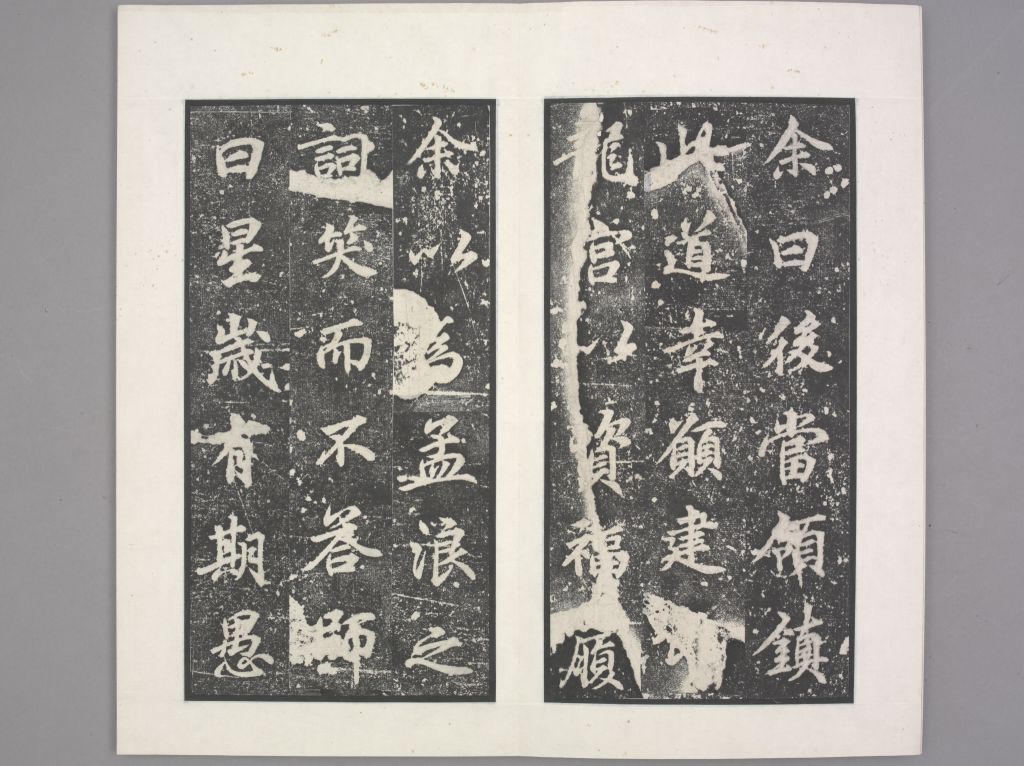 余曰後當領鎮
此道幸願建
龍宮以資福顧
余以為孟浪之
詞笑而不答師
曰星歲有期愚